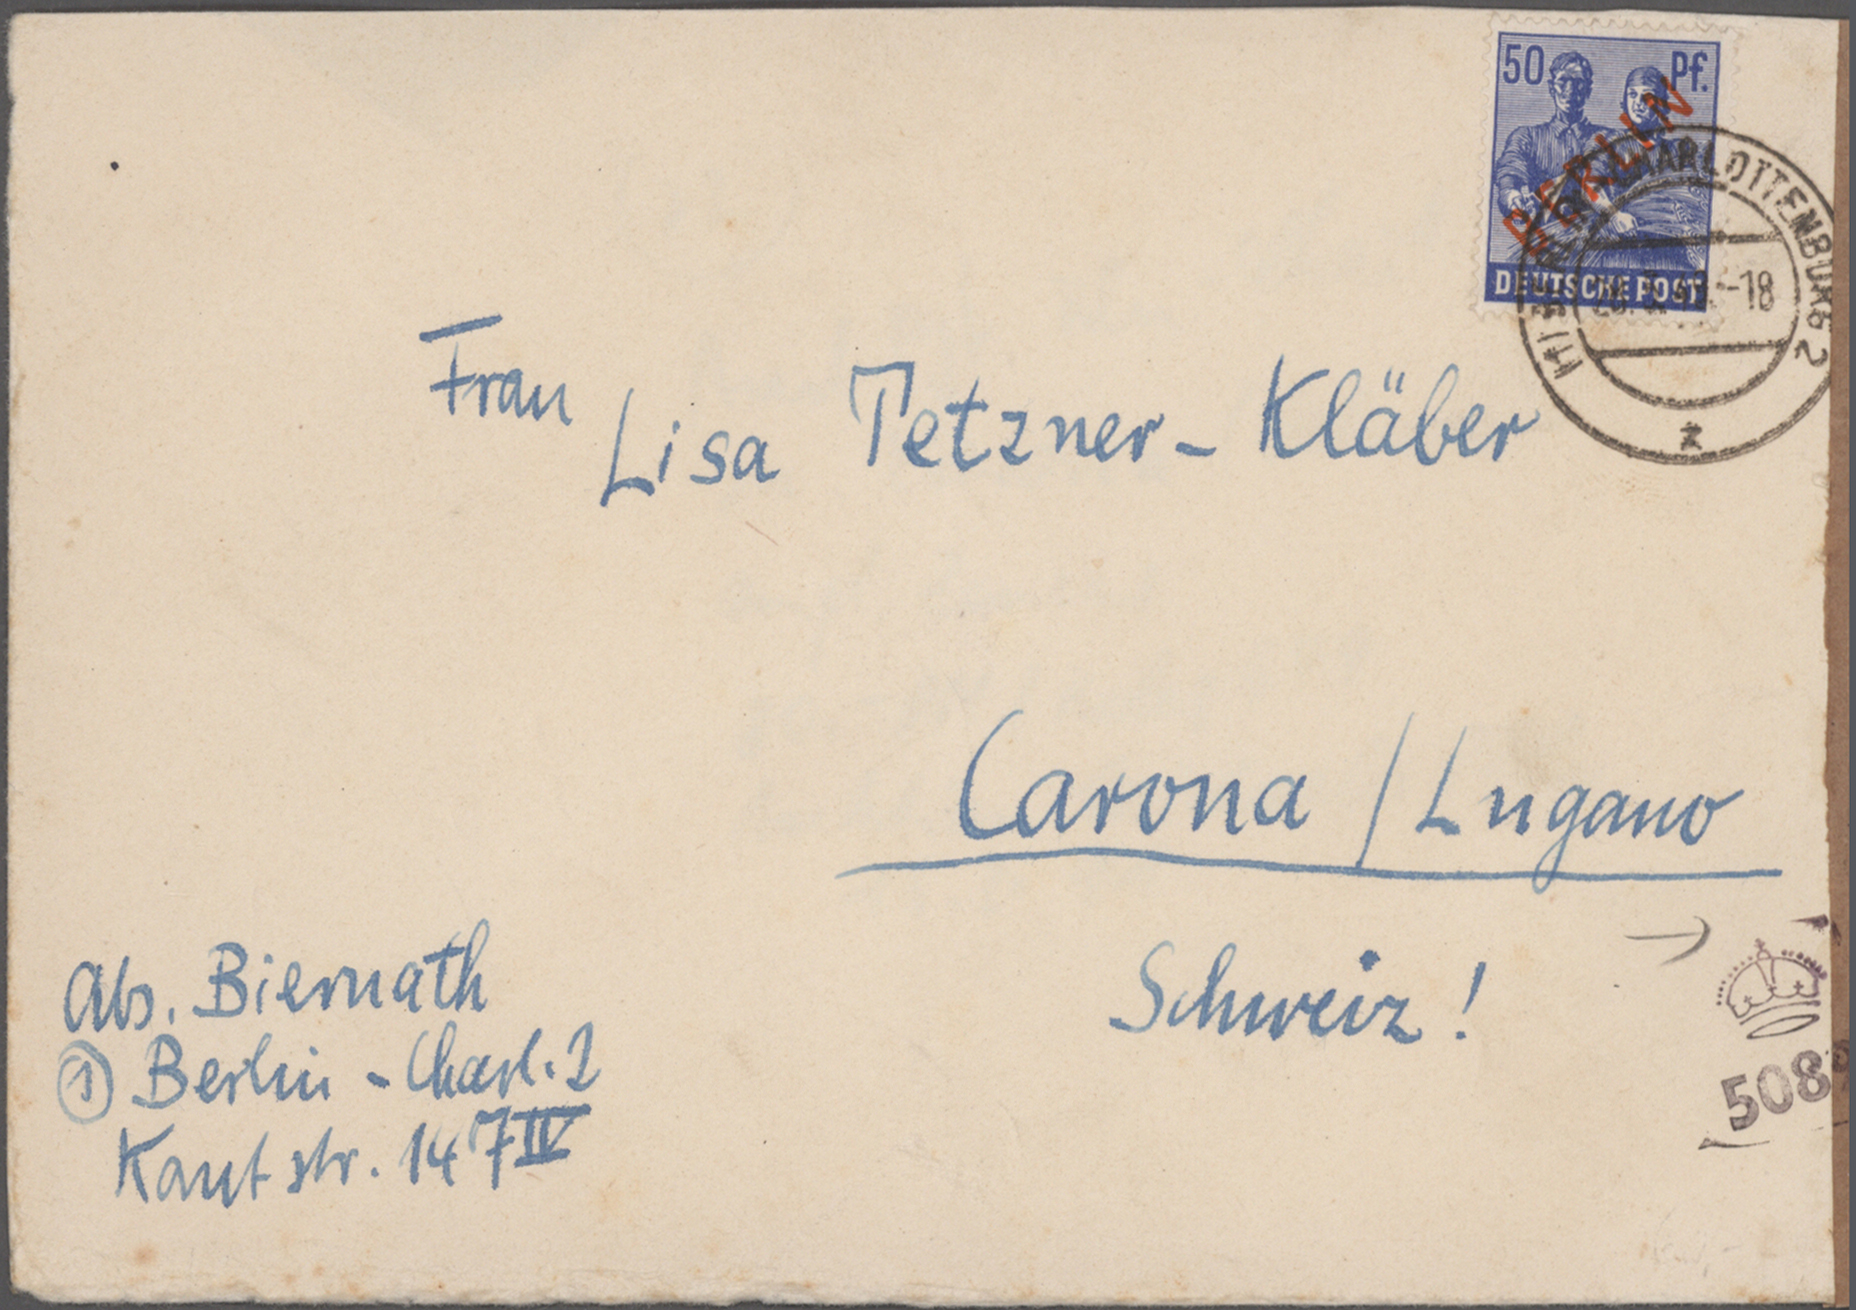 50 Pf.
BERLIN
DEUTSCHE POST
CHARLOTTENBURG 2
-18
z
Frau
Lisa Tetzner-Kläber
Carona / Lugano
Schweiz!
Abs. Biernath
① Berlin - Charl. 2
Kantstr. 147 IV
508